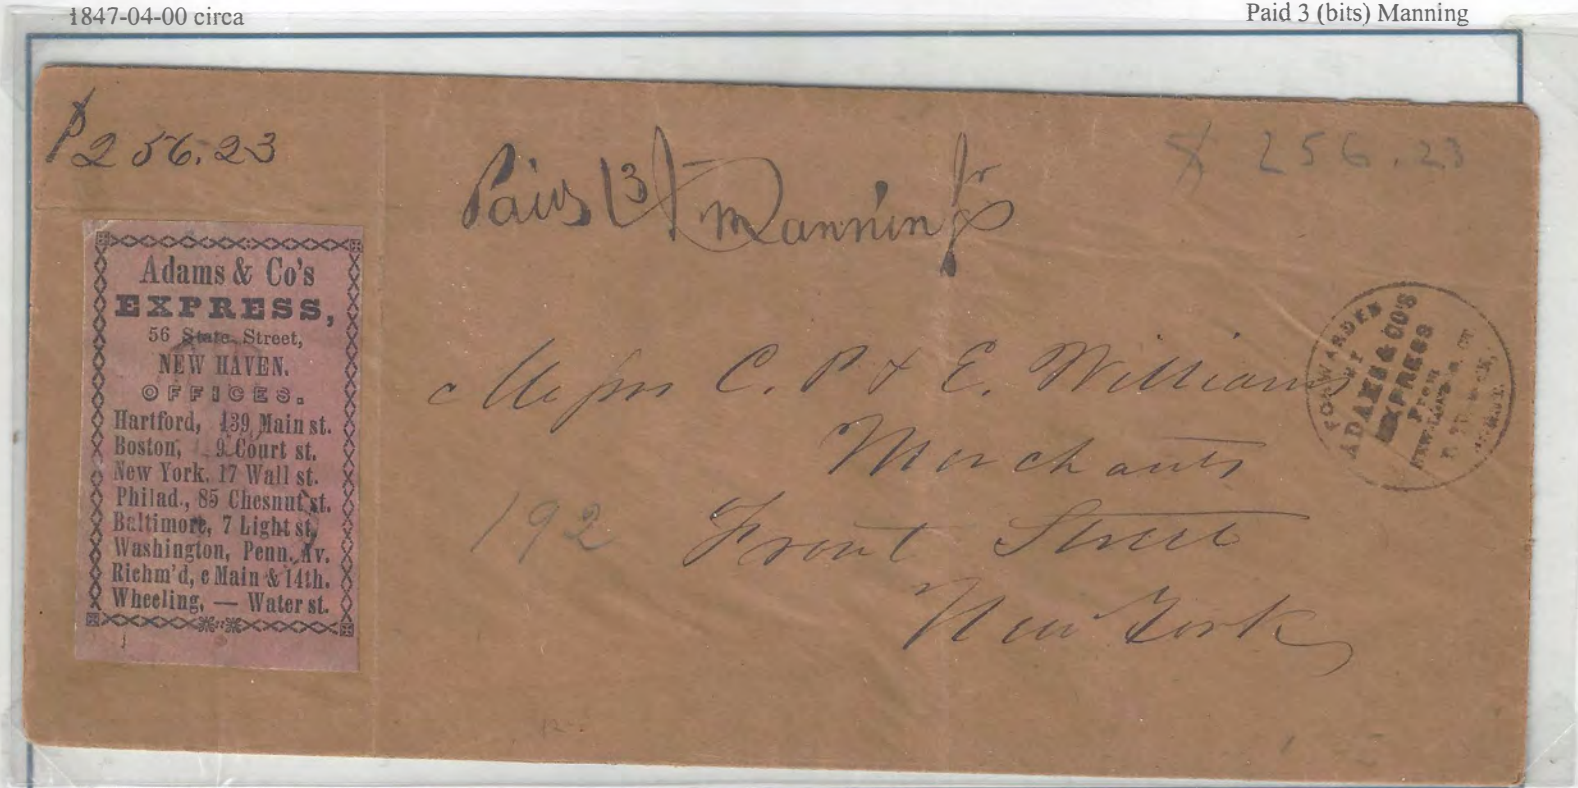 1847-04-00 circa
Paid 3 (bits) Manning
$256.23
Paid (3) Manning
$ 256.23
Adams & Co's
EXPRESS,
56 State Street,
NEW HAVEN.
OFFICES.
Hartford, 139 Main st.
Boston, 9 Court st.
New York, 17 Wall st.
Philad., 85 Chesnut st.
Baltimore, 7 Light st,
Washington, Penn. Av.
Richm'd, c Main & 14th.
Wheeling, — Water st.
Messrs C. P & E. Williams
Merchants
192 Front Street
New York
FORWARDED
BY
ADAMS & CO'S
EXPRESS
From
NEW-LONDON, CT